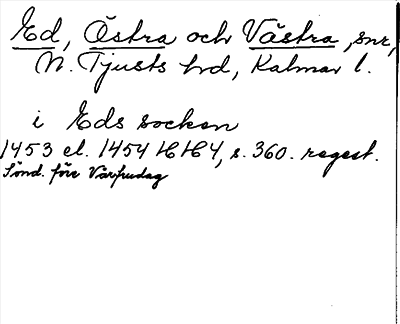 Ed, Östra och Västra, snr,
N. Tjusts hd, Kalmar l.
i Eds socken
1453 el. 1454 HH 4, s. 360. regest.
Sönd. före Vårfrudag